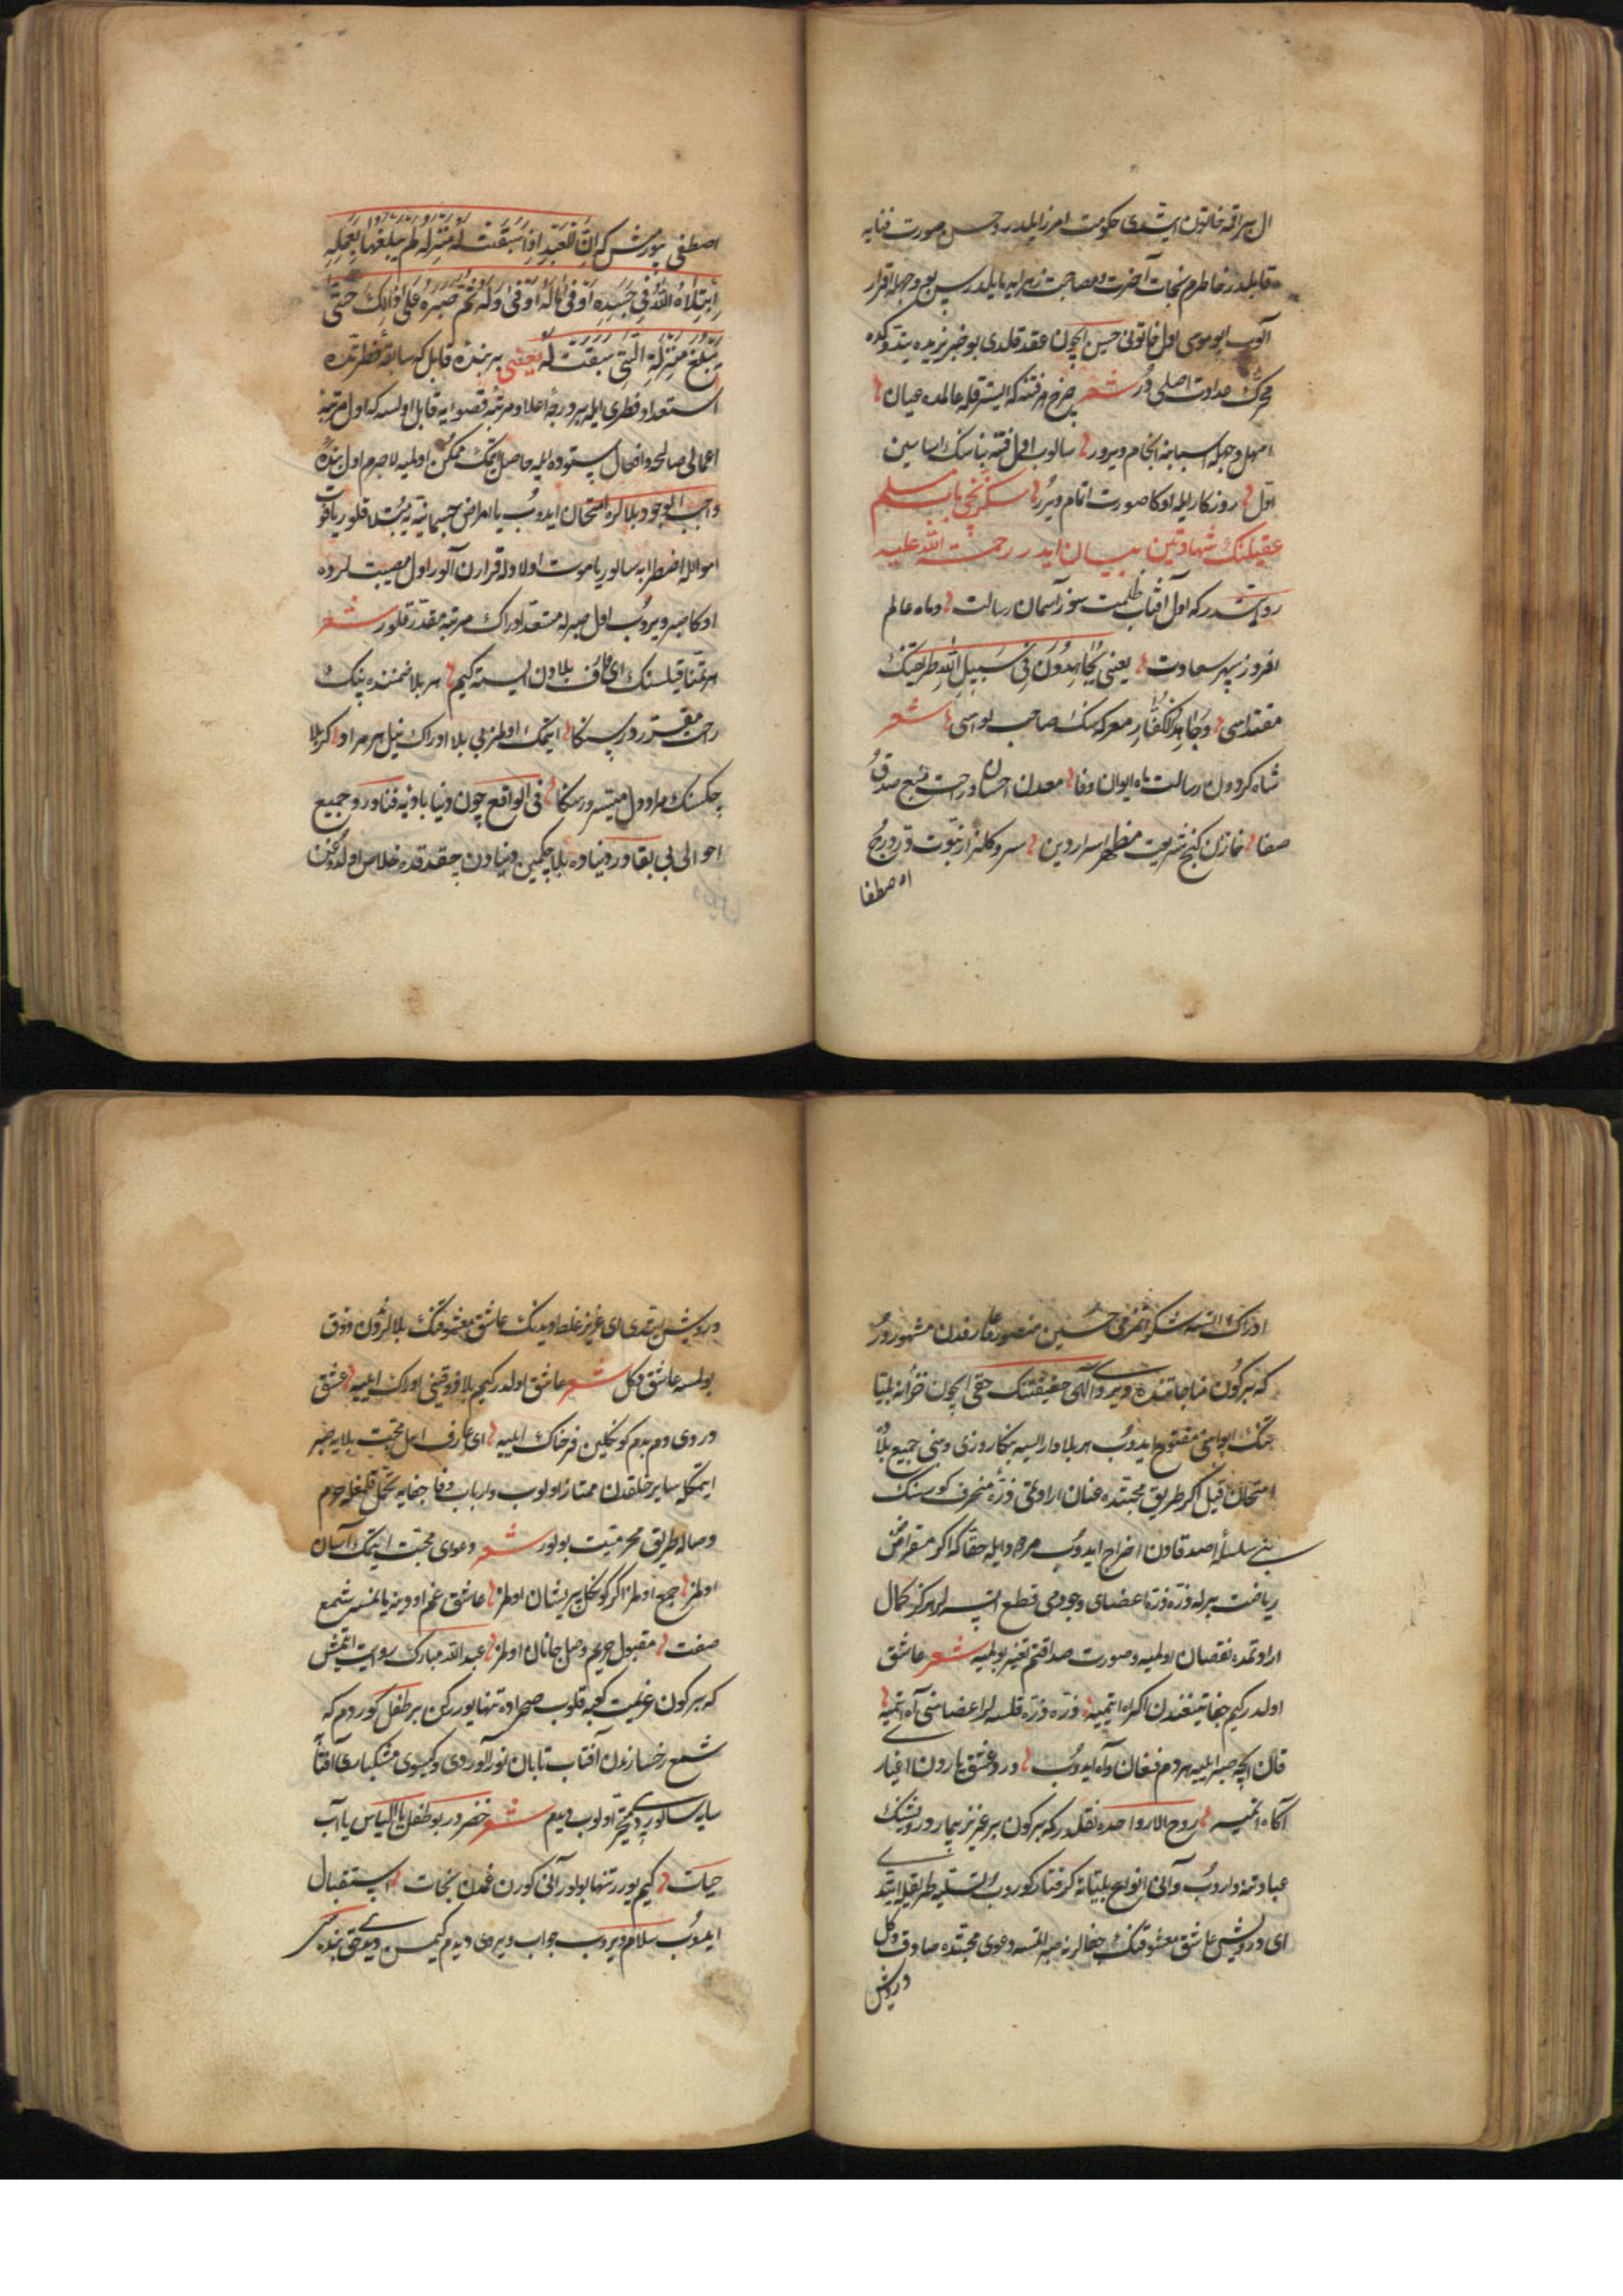 ال براقه خاتون ایتدی حکومت امر زایلدر و حسن صورت فنایه
قابلدر خاطرم نجات آخرت و مصاحبت زهرایه مایلدر سن بو وجهله اقرار
آلوب ابو موسی اول خاتونی حسین ایچون عقد قلدی بو خبر یزیده یتدوکده
محرک عداوت اصلی اولدی شعر چرخ هر فتنه که ایستر قله عالمده عیان
اسبابنه انجام ویرور سالوب اول فتنه بناسنک اساسین
اول روزکار ایله اوکا صورت اتمام ویرر سکزنجی باب مسلم
عقیلنک شهادتین بیان ایدر رحمت الله علیه
روایتدر که اول آفتاب ظلمت سوز آسمان رسالت و ماه عالم
افروز سپهر سعادت یعنی یجاهدون فی سبیل الله طریقتنک
مقتداسی و جاهد الکفار معرکه سنک صاحب لواسی شعر
شاه کردون رسالت ماه ایوان وفا معدن احسان و راحت منبع صدق
صفا خازن کنج شریعت مظهر اسرار دین سرو کلزار نبوت در درج
اصطفا
اصطفی بیورمش که ان للعبد اذا سبقت له منزلة لم یبلغها بعمله
ابتلاه الله فی جسده او فی ماله او فی اولده ثم صبره علی ذالک حتی
یبلغ منزلة التی سبقت له یعنی بر بنده قابل که سابقه فطرتده
استعداد فطری ایله بر درجه اعلا و مرتبه قصوایه قابل اولسه که اول مرتبه
اعمال صالحه و افعال ستوده ایله حاصل اتمک ممکن اولمیه لاجرم اول بنده
واجب الوجود بلالره امتحان ایدوب یا امراض جسمانیه یه مبتلا قلور یا قوت
اموالله اضطرابه سالور یا موت اولادله قرارن آلور اول مصیبتلرده
اوکا صبر ویروب اول صبرله مستعد ادراک مرتبه مقدر قلور شعر
هر تمنا قیلسنک ای عارف بلادن ایسته کیم هر بلا ضمننده بیک
راحت مقرر در سنکا ایتمک اولمز بی بلا ادراک نیل هر مراد کر بلا
چکسنک مراد دل میسر در سنکا فی الواقع چون دنیا بادیه فنادر و جمیع
احوالی بی بقادر دنیاده بلا چکمین دنیادن چقدقده خلاص اولدوغن
ادراک ایتمه شکر ایتمز می حسین منصور عارفدن مشهوردر
که بر کون مناجاتنده دیردی الهی حقیقتنک حقی ایچون خزانه بلیا
تنک ابوابنی مفتوح ایدوب هر بلا وارایسه بنکا روزی و بنی جمیع بلا
امتحان قیل اکر طریق محبتده عنان ارادتی ذره منحرف کورسنک
بنی سلسله اصدقادن اخراج ایدوب مردود ایله حقا که اکر مقراض
ریاضت برله ذره ذره اعضای وجودمی قطع ایتسه لر هرکز کمال
ارادتمده نقصان اولمیه و صورت صداقتم تغیر بولمیه شعر عاشق
اولدر کیم جفا تیغندن اکراه ایتمیه ذره ذره قلسه لر اعضاسنی آه ایتمیه
قان ایچه صبر ایلیه هر دم فغان و آه ایدوب درد عشق یاردن اغیار
آکاه ایتمیه روح الارواحده نقلدر که بر کون بر عزیز بیمار درویشنک
عیادتنه واروب و آنی انواع بلیاته کرفتار کوروب تسلیه طریقیله ایتدی
ای درویش عاشق معشوقنک جفالرینه صبر ایتمسه دعوی محبتده صادق دکل
درویش
درویش ایتدی ای عزیز غلط اویدنک عاشق معشوقنک بلالرندن ذوق
بولمسه عاشق دکل شعر عاشق اولدر کیم بلا ذوقینی ادراک ایلیه عشق
دردی دم بدم کونکلین فرحناک ایلیه ای عارف اهل محبت بلایه صبر
ایتمکله سایر خلقدن ممتاز اولوب و ارباب وفا جفایه تحمل قلمغله حرم
وصاله طریق محرمیت بولور شعر دعوای محبت ایتمک آسان
اولمز جمع اولمز اکر کونکل پریشان اولمز عاشق غم اودینه یانمسه شمع
صفت مقبول حریم وصل جانان اولمز عبدالله مبارک روایت ایتمش
که بر کون عزیمت کعبه قلوب صحراده تنها یوررکن بر طفل کوردم که
شمع رخسارندن آفتاب تابان نور آلوردی و کیسوی مشکباری آفتابه
سایه سالوردی متحیر اولوب دیدم شعر خضردر بو طفل یا الیاس یا آب
حیات کیم یورر تنها بولور آنی کورن غمدن نجات استقبال
ایدوب سلام ویروب جواب ویردی دیدم کیمسن دیدی بنده